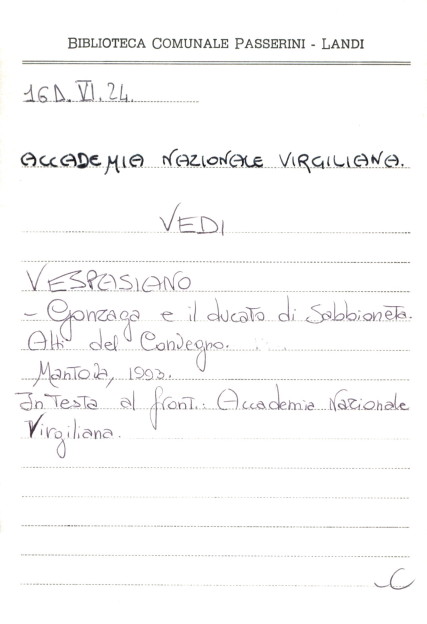 BIBLIOTECA COMUNALE PASSERINI - LANDI
16 D. VI. 24.
ACCADEMIA NAZIONALE VIRGILIANA.
VEDI
VESPASIANO
- Gonzaga e il ducato di Sabbioneta.
Atti del Convegno.
Mantova, 1993.
In testa al front.: Accademia Nazionale
Virgiliana.
C